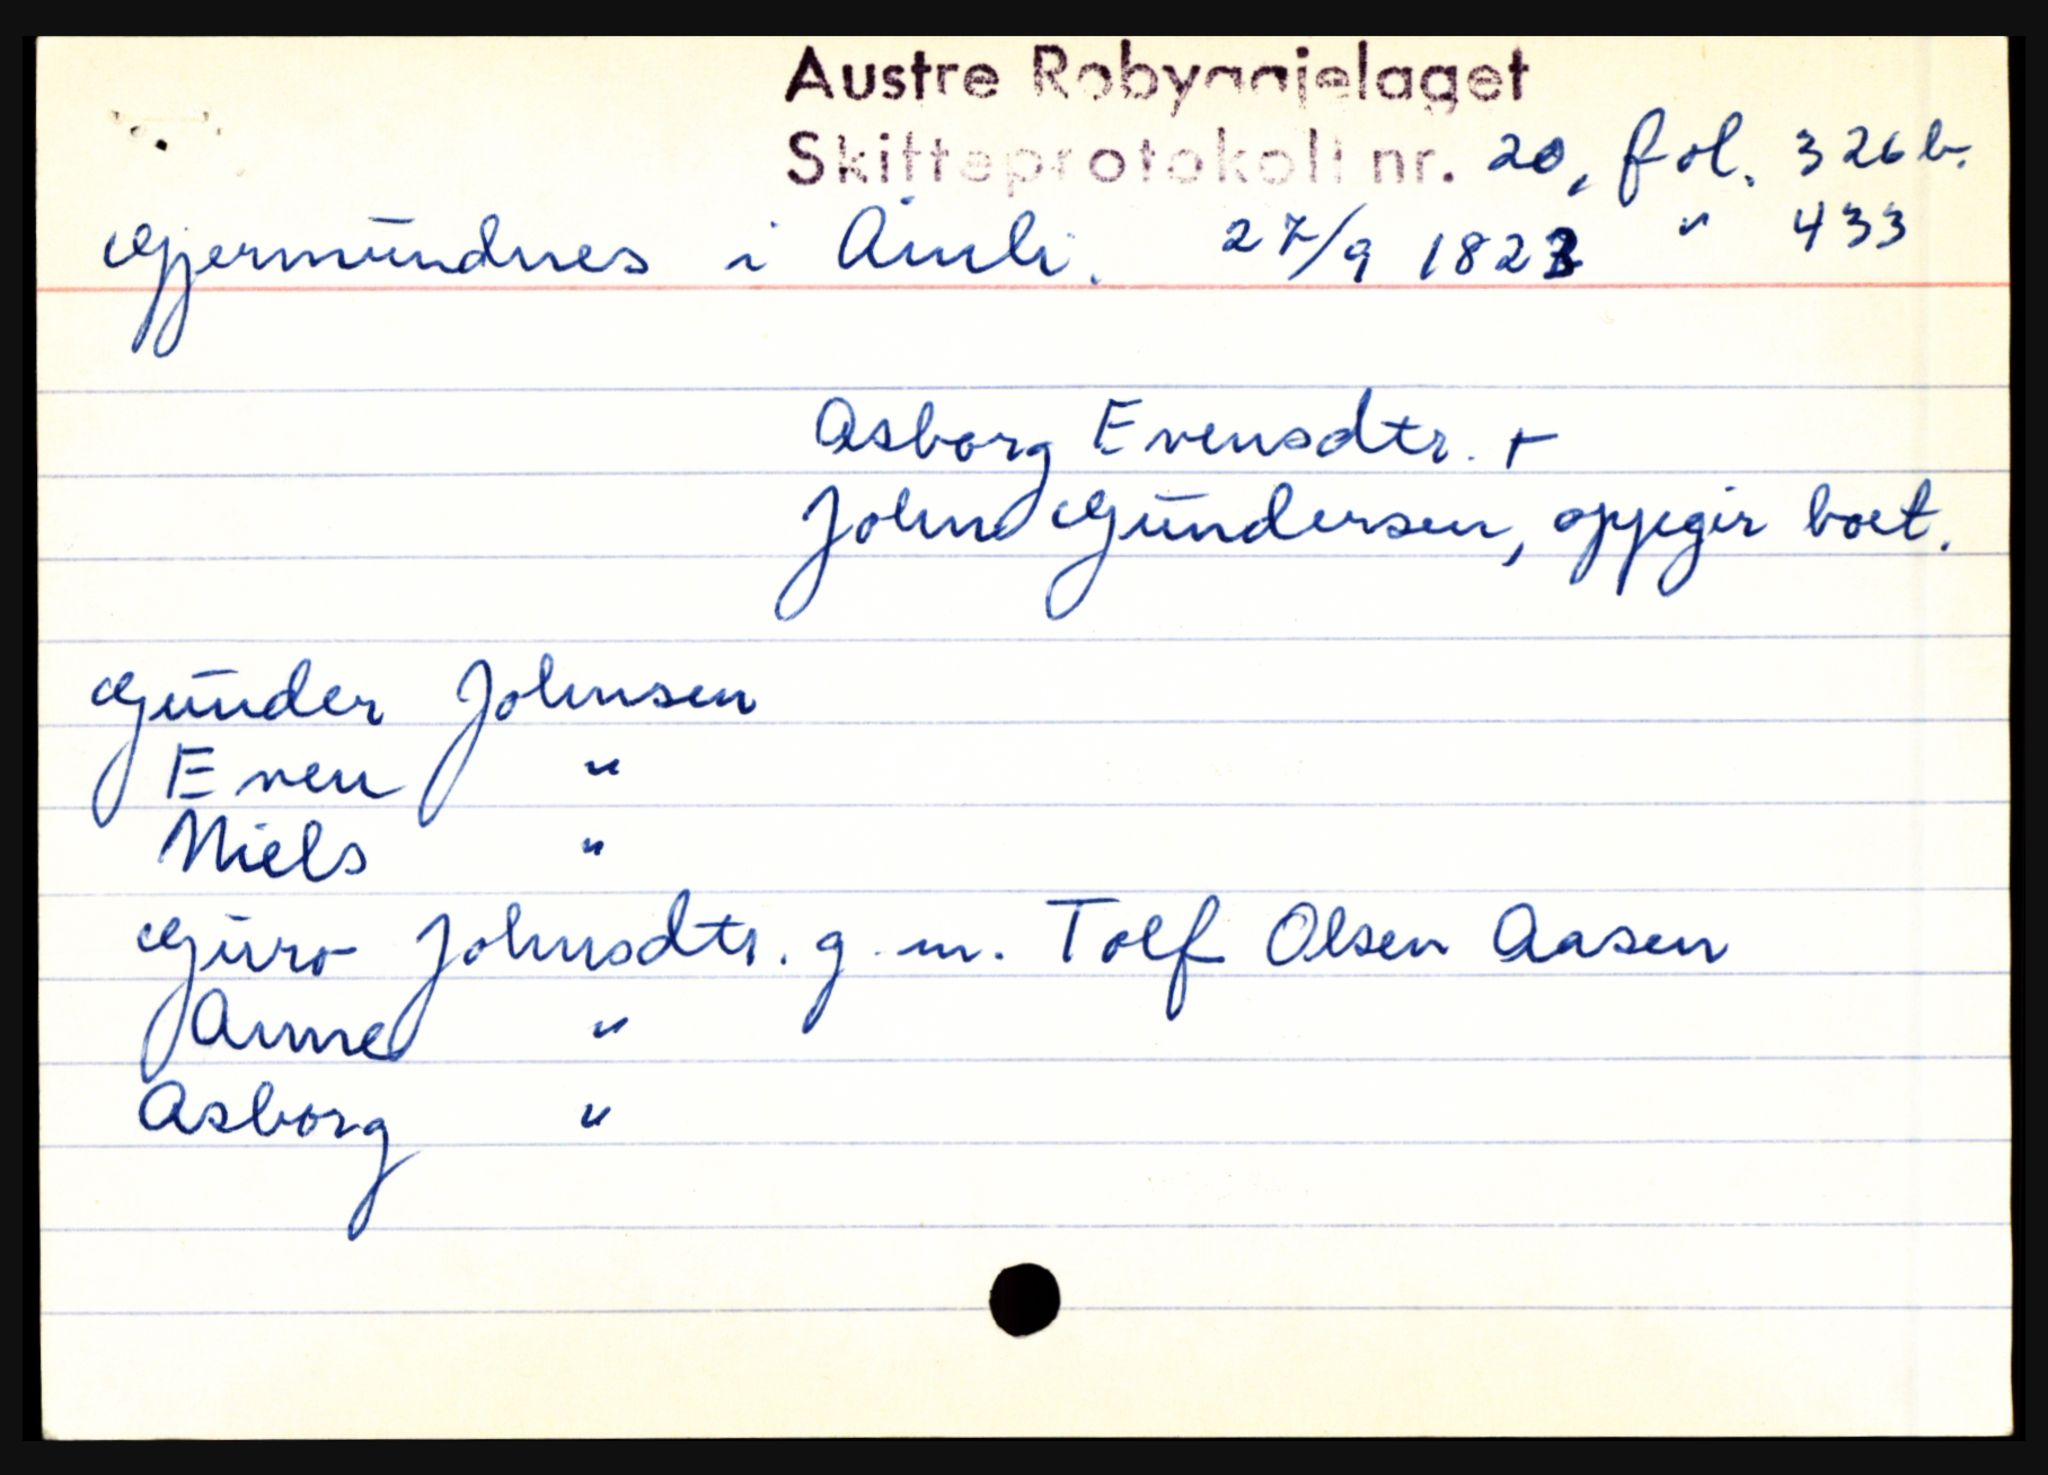 Austre Robyggjelaget
Skifteprotokoll nr. 20, fol. 326 b.
Gjermundnes i Åmli. 27/9 1823 " 433
Asborg Evensdtr. +
John Gundersen, oppgir boet.
Gunder Johnsen
Even "
Niels "
Guro Johnsdtr. g. m. Tolf Olsen Aasen
Anne "
Asborg "